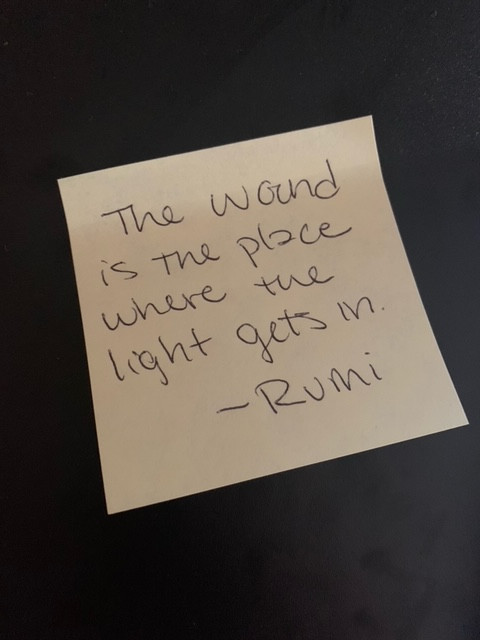 The wound
is the place
where the
light gets in.
-Rumi